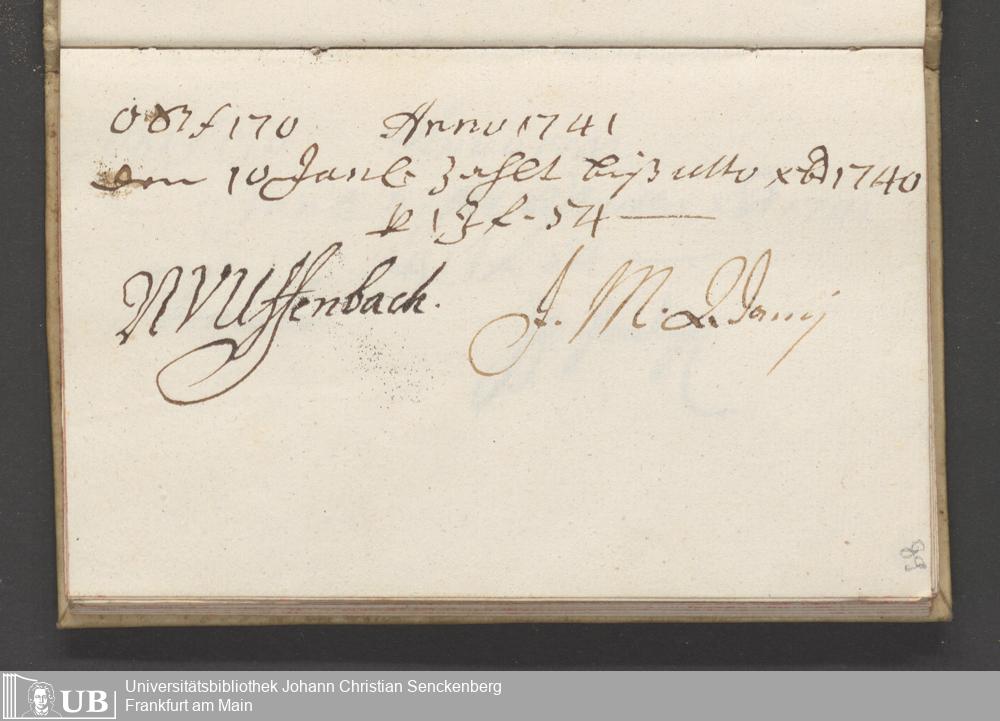 170 Anno 1741
den 10 Janu: zahlt biß ulto xbr 1740
13 f - 54
NVUffenbach.
J. M.
89
UB Universitätsbibliothek Johann Christian Senckenberg
Frankfurt am Main